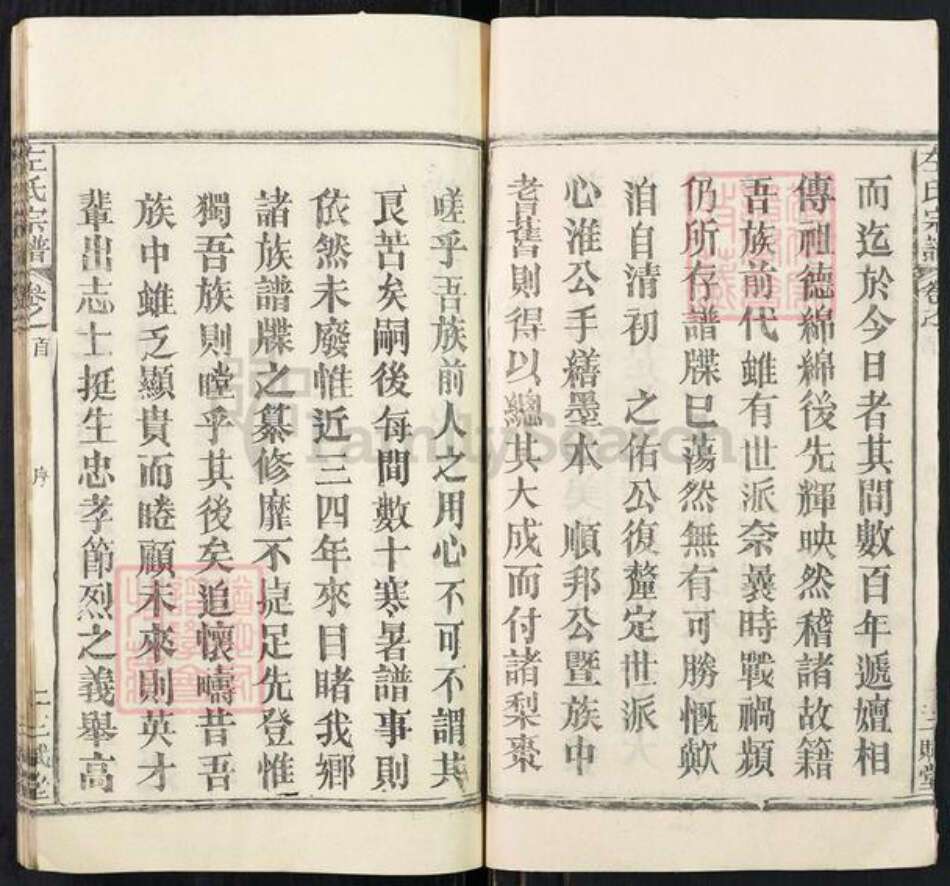 而迄於今日者其間數百年遞嬗相
傳祖德綿綿後先輝映然稽諸故籍
吾族前代雖有世派奈曩時戰禍頻
仍所存譜牒已蕩然無有可勝慨歟
洎自清初 之佑公復釐定世派
心淮公手繕墨本 順邦公暨族中
耆舊則得以總其大成而付諸梨棗
左氏宗譜 卷之首 序
嗟乎吾族前人之用心不可不謂其
艮苦矣嗣後每間數十寒暑譜事則
依然未廢惟近三四年來目睹我鄉
諸族譜牒之纂修靡不疌足先登惟
獨吾族則瞠乎其後矣追懷疇昔吾
族中雖乏顯貴而睠顧未來則英才
輩出志士挺生忠孝節烈之義舉高
左氏宗譜
FamilySearch